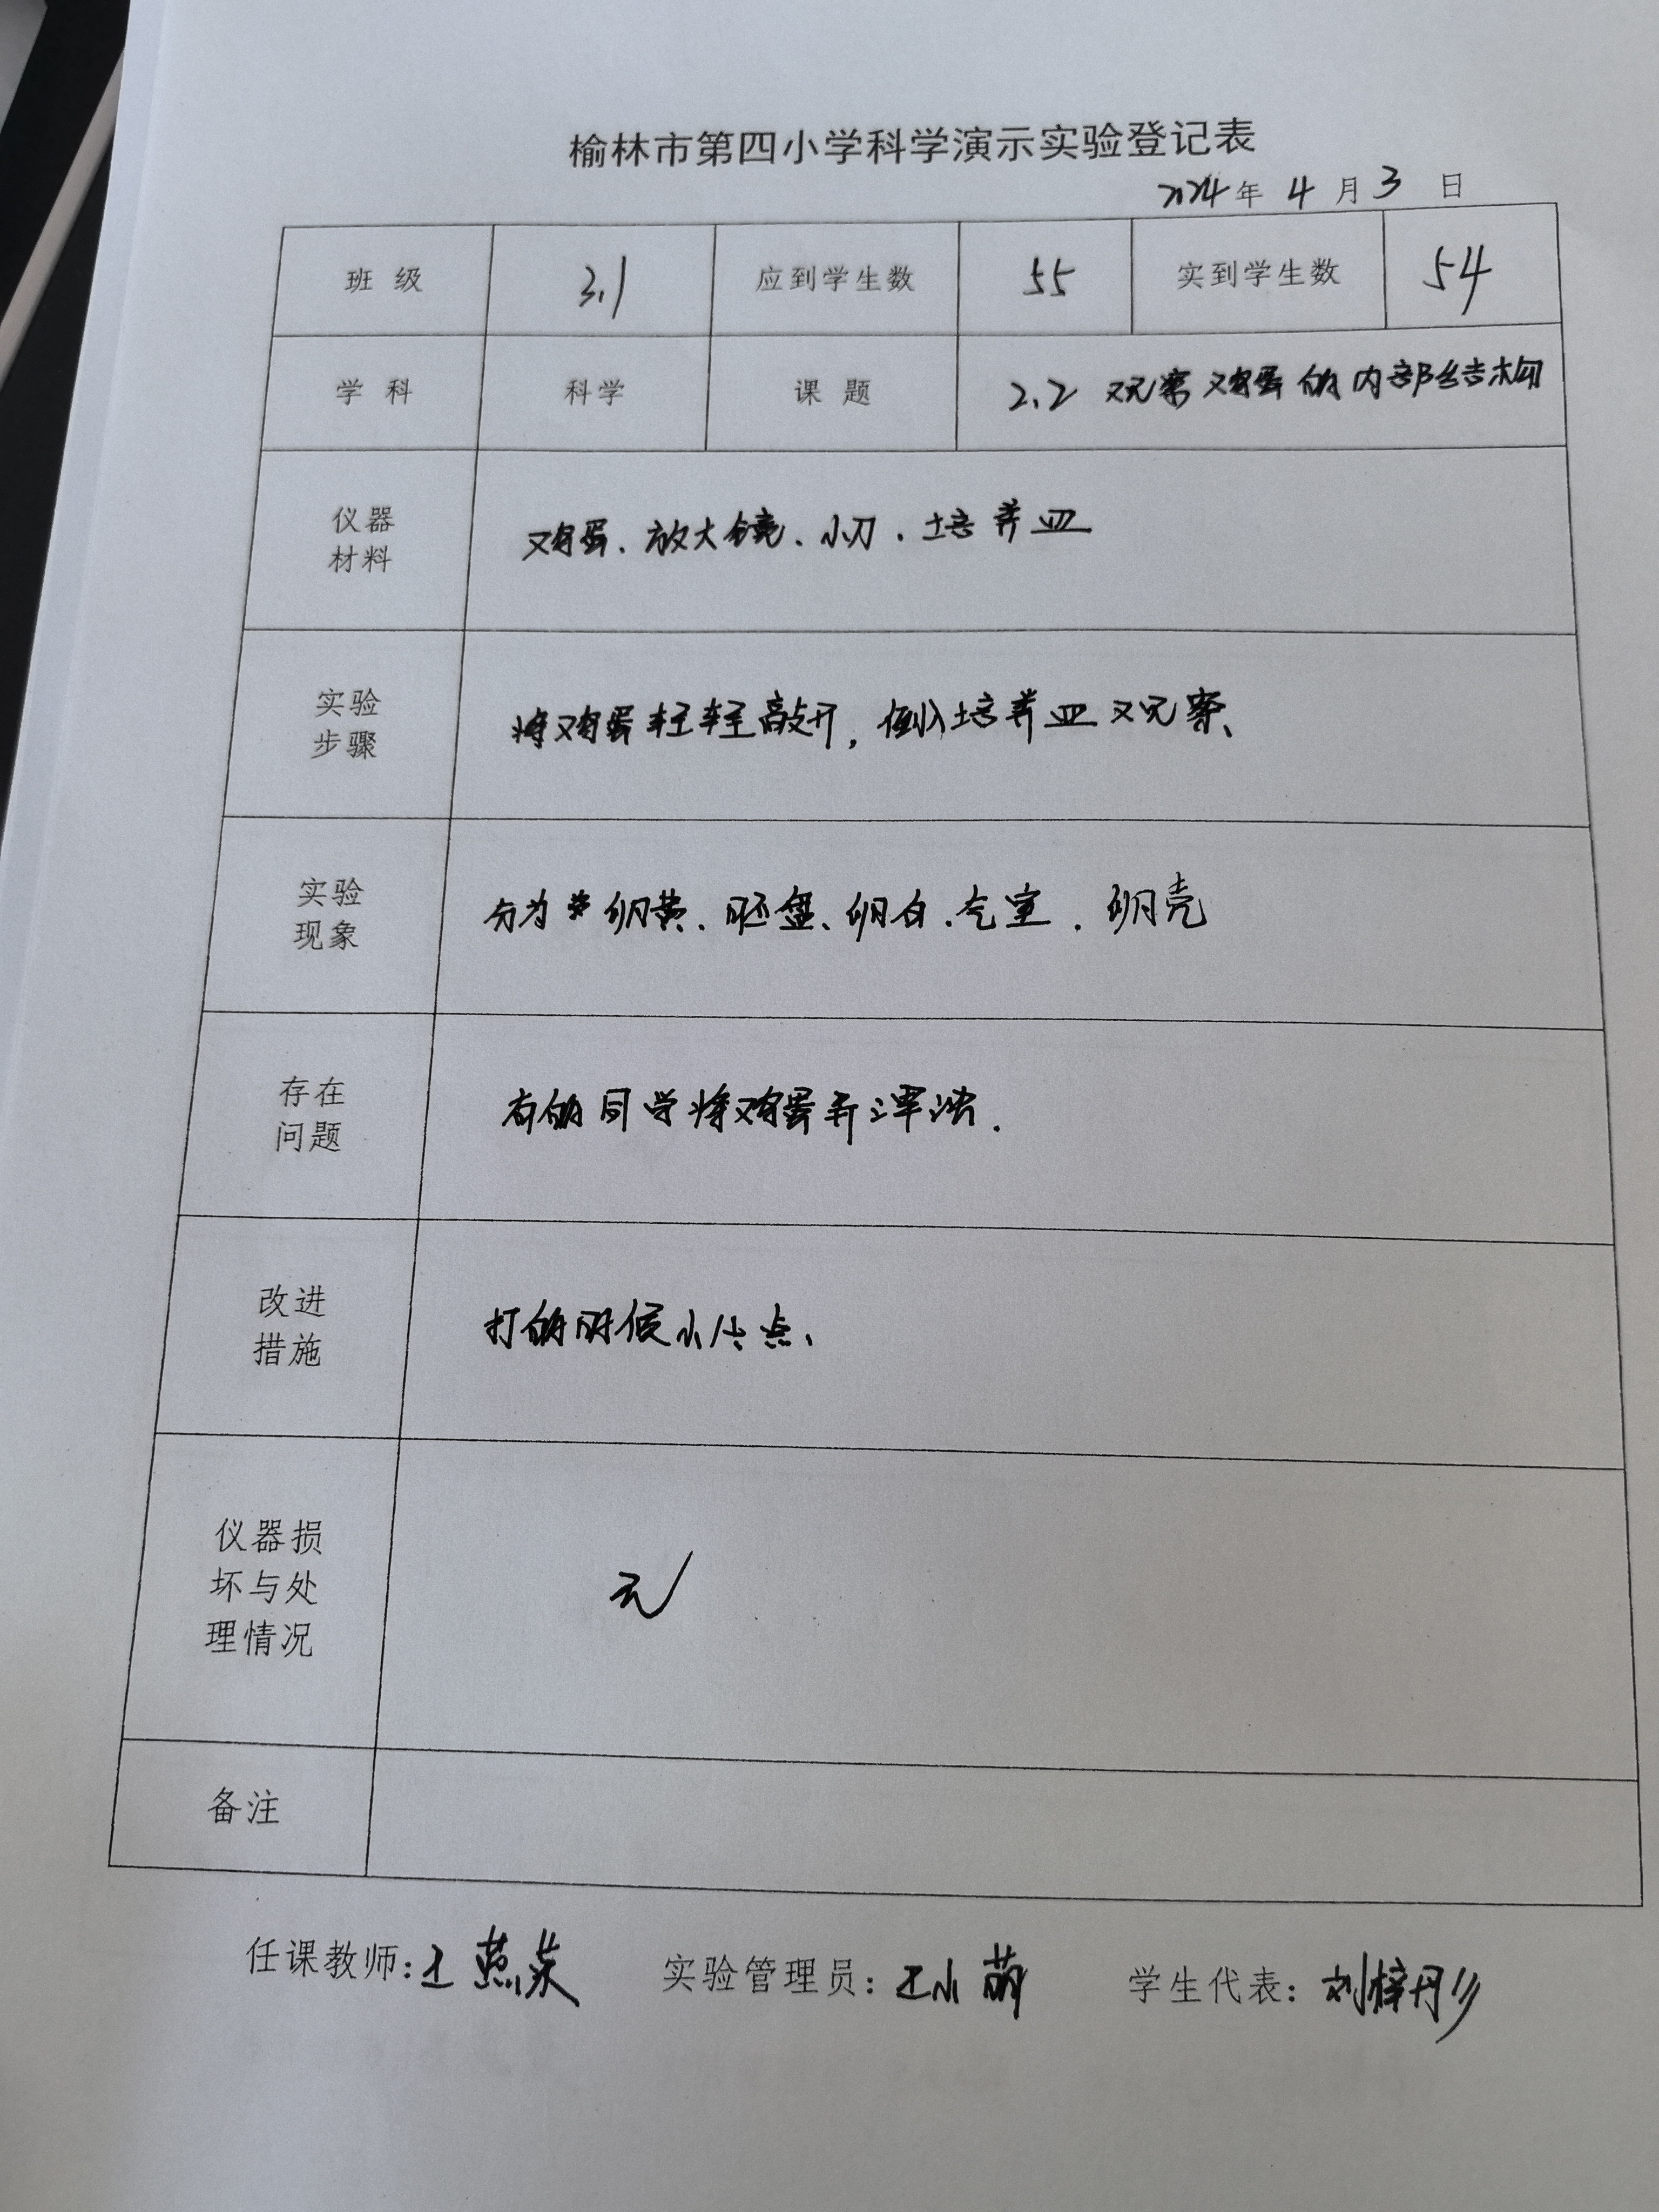 榆林市第四小学科学演示实验登记表
2024年 4 月 3 日
班 级 3.1 应到学生数 55 实到学生数 54
学 科 科学 课 题 2.2 观察鸡蛋的内部结构
仪器
材料
鸡蛋、放大镜、小刀、培养皿
实验
步骤
将鸡蛋轻轻敲开,倒入培养皿观察、
实验
现象
分为 卵黄、胚盘、卵白、气室、卵壳
存在
问题
有的同学将鸡蛋弄浑浊.
改进
措施
打的时候小心点、
仪器损
坏与处
理情况
无
备注
任课教师:王燕 实验管理员:王小萌 学生代表:刘梓彤